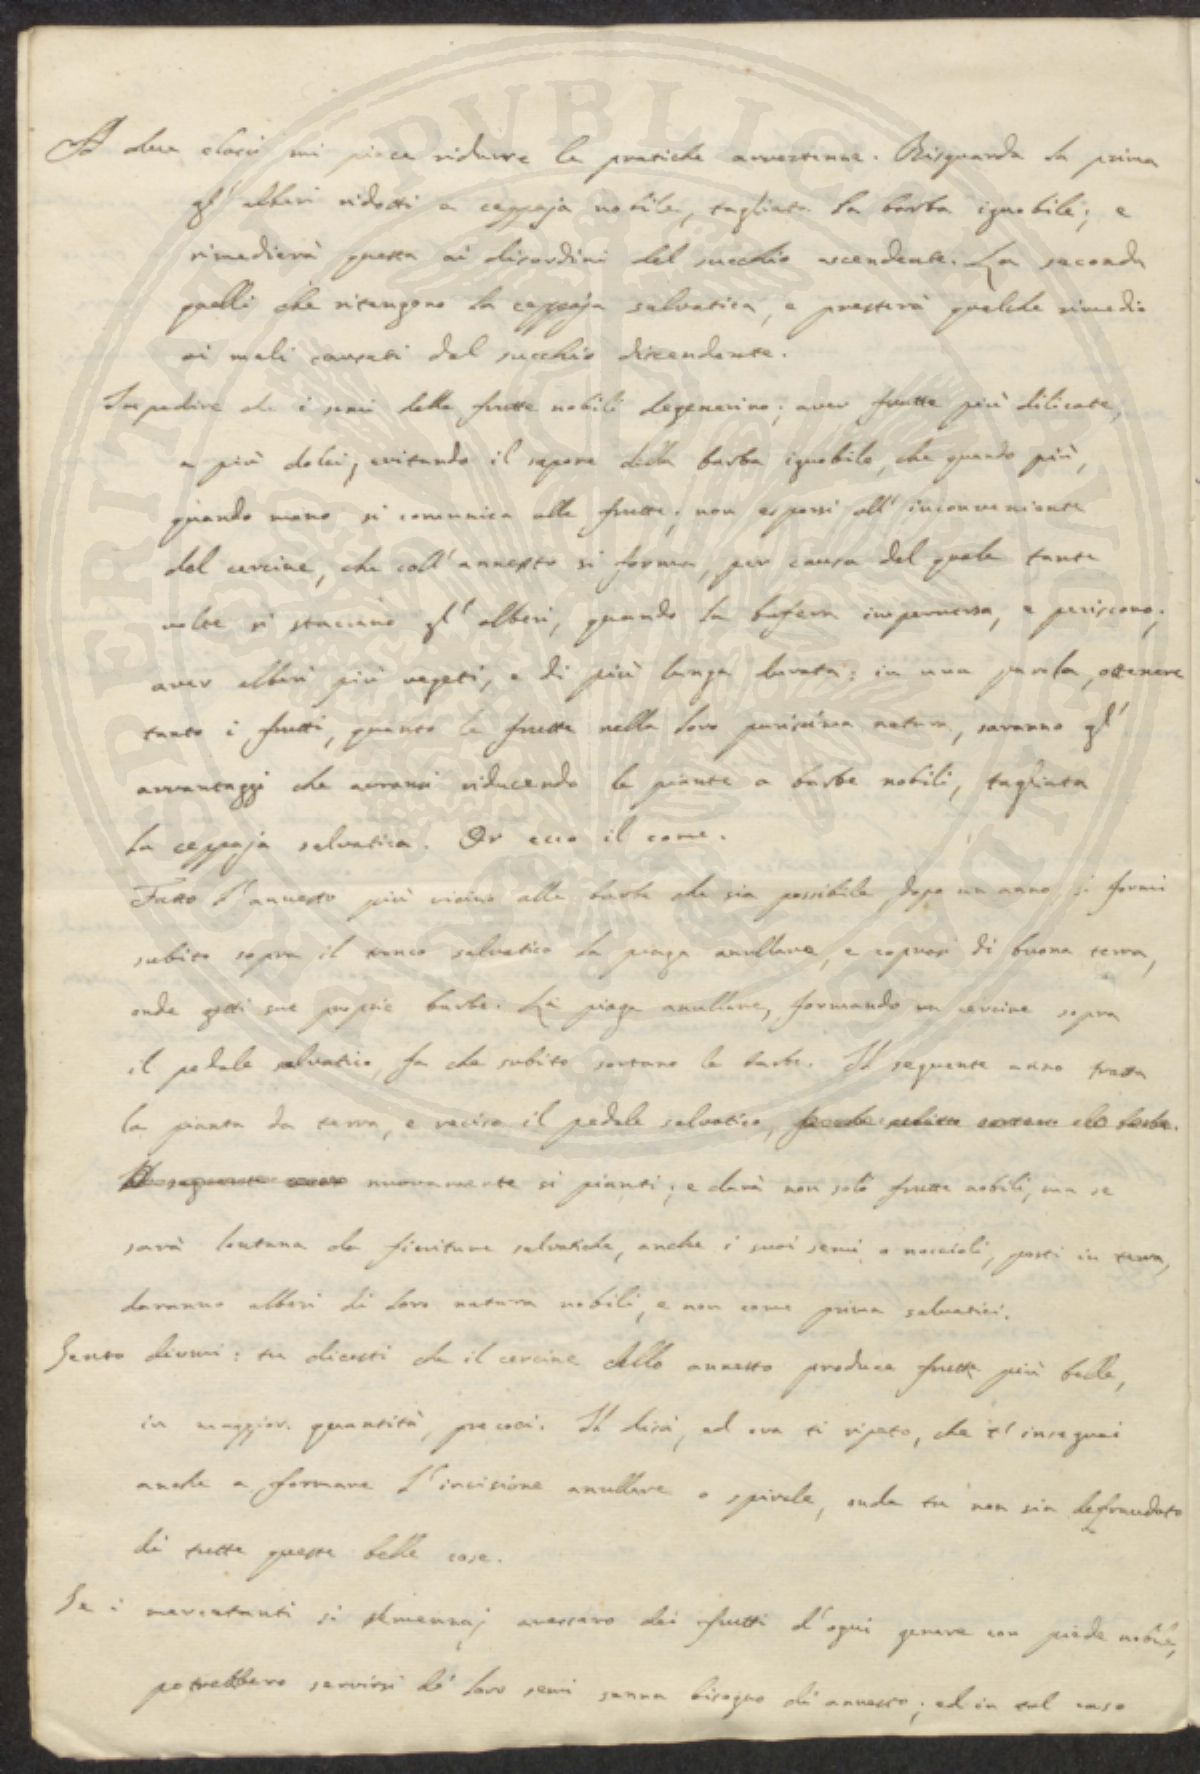 A due classi mi piace ridurre le pratiche avvertenze. Risguarda la prima
gl' alberi ridotti a ceppaja nobile, tagliata la barba ignobile; e
rimedierà questa ai disordini del succhio ascendente. La seconda
quelli che ritengono la ceppaja salvatica, e presterà qualche rimedio
ai mali causati dal succhio discendente.
Impedire che i semi delle frutte nobili degenerino; aver frutte più dilicate,
e più dolci, evitando il sapore della barba ignobile, che quando più,
quando meno si comunica alle frutte; non esporsi all' inconveniente
del cercine, che coll' annesto si forma, per causa del quale tante
volte si staccano gl' alberi, quando la bufera imperversa, e periscono;
aver alberi più vegeti, e di più lunga durata; in una parola, ottenere
tanto i frutti, quanto le frutte nella loro purissima natura, saranno gl'
avvantaggi che avransi riducendo le piante a barbe nobili, tagliata
la ceppaja salvatica. Or ecco il come.
Fatto l' annesto più vicino alle barbe che sia possibile dopo un anno si formi
subito sopra il tronco salvatico la piaga anullare, e coprasi di buona terra,
onde getti sue proprie barbe. La piaga anullare, formando un cercine sopra
il pedale salvatico, fa che subito sortano le barbe. Il seguente anno tratta
la pianta da terra, e reciso il pedale salvatico, fa che subito sortano le barbe.
Il seguente anno nuovamente si pianti; e darà non solo frutte nobili, ma se
sarà lontana da fioriture salvatiche, anche i suoi semi o noccioli, posti in terra,
daranno alberi di loro natura nobili, e non come prima salvatici.
Sento dirmi: tu dicesti che il cercine dello annesto produce frutte più belle,
in maggior quantità, precoci. Il dissi, ed ora ti ripeto, che t' insegnai
anche a formare l' incisione anullare o spirale, onde tu non sia defraudato
di tutte queste belle cose.
Se i mercatanti si avessero dei frutti d' ogni genere con piede nobile,
potrebbero servirsi de' loro semi senza bisogno di annesto; ed in tal caso